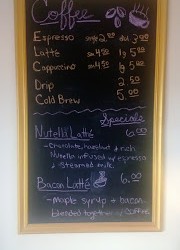 Coffee
Espresso single 2.00 dbl 3.00
Latté sm 4.50 lg 5.00
Cappuccino sm 4.50 lg 5.00
Drip 2.50
Cold Brew 5.00
Specials
Nutella Latté 6.00
- Chocolate, hazelnut & rich
Nutella infused w/ espresso
& steamed milk.
Bacon Latté 6.00
- Maple syrup & bacon
blended together w/ coffee